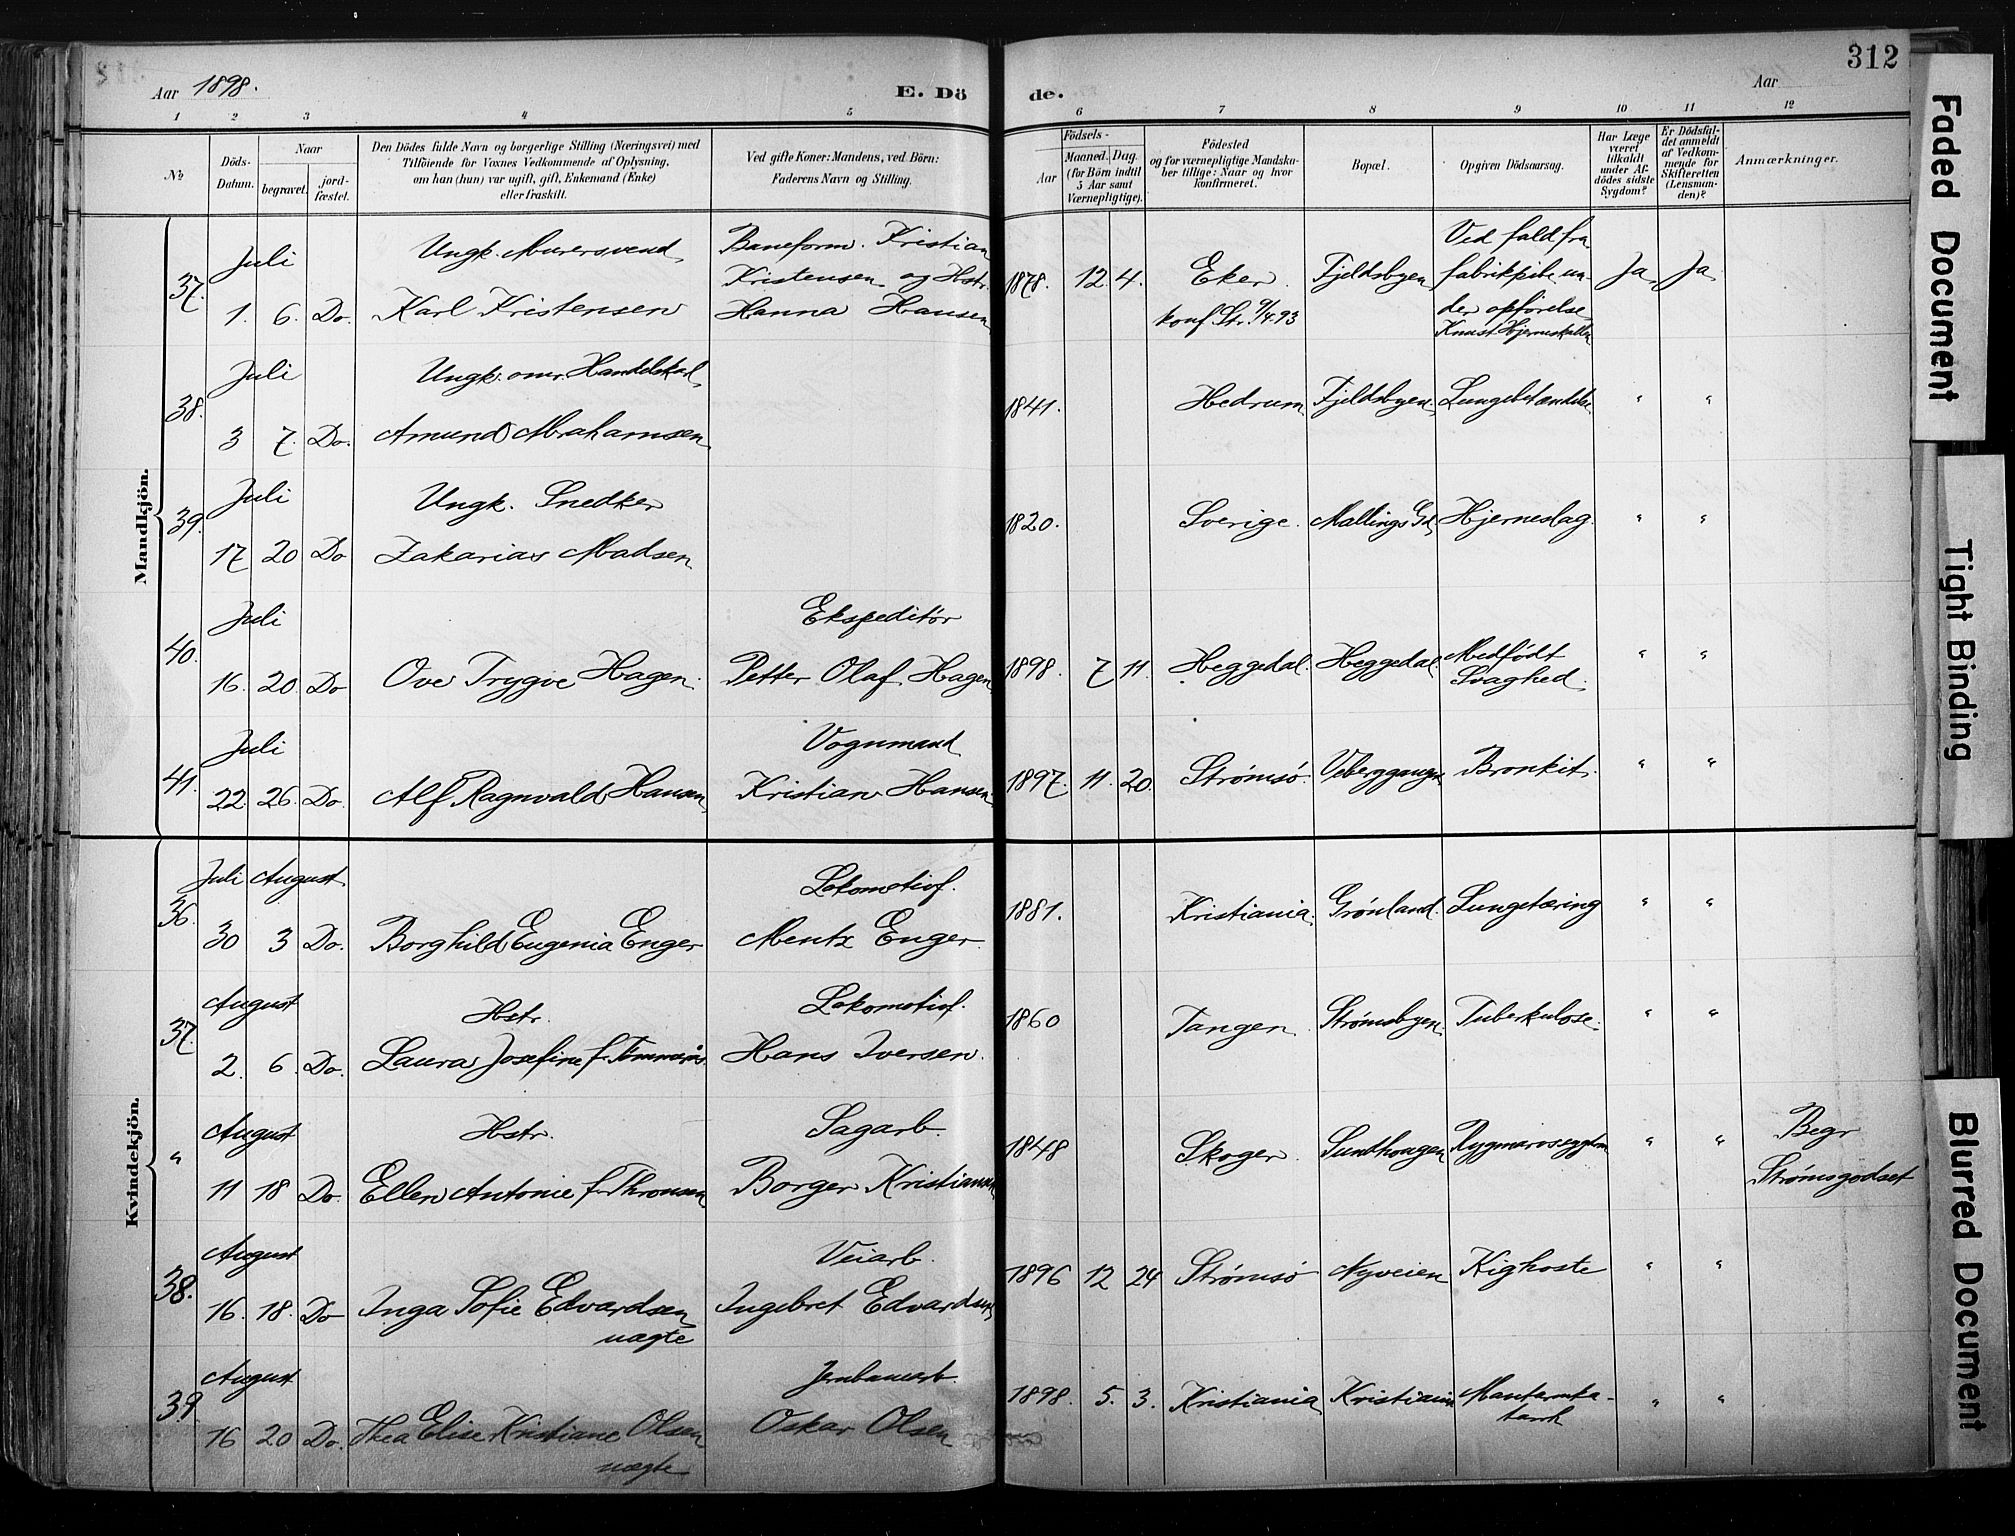 312
Aar 1898.
E. Dö de.
Aar
1 2 3 4 5 6 7 8 9 10 11 12
№
Döds-Datum.
Naar
begravet.
jord-fæstet.
Den Dödes fulde Navn og borgerlige Stilling (Næringsvei) med
Tilföiende for Voxnes Vedkommende af Oplysning,
om han (hun) var ugift, gift, Enkemand (Enke)
eller fraskilt.
Ved gifte Koner: Mandens, ved Börn:
Faderens Navn og Stilling.
Födsels-
Aar
Maaned. Dag.
(for Börn indtil
5 Aar samt
Værnepligtige).
Födested
og for værnepligtige Mandska-
ber tillige: Naar og hvor
konfirmeret.
Bopæl.
Opgiven Dödsaarsag.
Har Læge
været
tilkaldt
under Af-
dödes sidste
Sygdom?
Er Dödsfal-
det anmeldt
af Vedkom-
mende for
Skifteretten
(Lensman-
den)?
Anmærkninger.
Mandkjön.
37. Juli
1. 6. Do.
Ungk. Murersvend
Karl Kristensen
Baneform. Kristian
Kristensen og Hstr.
Hanna Hansen
1878. 12. 4.
Eker
konf. Str. 9/4 93
Fjeldsbyen
Ved fald fra
fabrikpibe un-
der opförelse
Knust Hjerneskallen
Ja Ja
38. Juli
3 7. Do.
Ungk. Handelskarl
Amund Abrahamsen
1841. Hedrum Fjeldsbyen. Lungebetændelse " "
39. Juli
17 20 Do
Ungk. Snedker
Zakarias Madsen
1820. Sverige. Mallings Gd. Hjerneslag. " "
40. Juli
16. 20. Do
Ove Trygve Hagen.
Ekspeditør
Petter Olaf Hagen
1898. 7 11. Heggedal. Heggedal.
Medfödt
Svaghed.
" "
41. Juli
22. 26. Do.
Alf Ragnvald Hansen
Vognmand
Kristian Hansen.
1897. 11. 20. Strømsö. Bronkit. " "
Kvindekjön.
36. Juli August
30 3 Do.
Borghild Eugenia Enger
Lokomotivf.
Mentz Enger.
1881. Kristiania. Grønland. Lungetæring " "
37. August
2. 6. Do.
Hstr.
Laura Josefine f.
Lokomotivf.
Hans Iversen.
1860 Tangen. Strømsbyen. Tuberkulose. " "
" August
11 18 Do.
Hstr.
Ellen Antonie f. Thronsen
Sagarb.
Borger Kristiansen
1848 Skoger. Sundhaugen " "
Begr
Strømsgodset
38. August
16. 18. Do
Inga Sofie Edvardsen
uægte
Veiarb.
Ingebret Edvardsen
1896 12 24 Strømsö Nyveien Kighoste " "
39 August
16 20 Do.
Thea Elise Kristiane Olsen
uægte
Jernbanearb.
Oskar Olsen
1898. 5. 3. Kristiania Kristiania " "
Faded Document
Tight Binding
Blurred Document